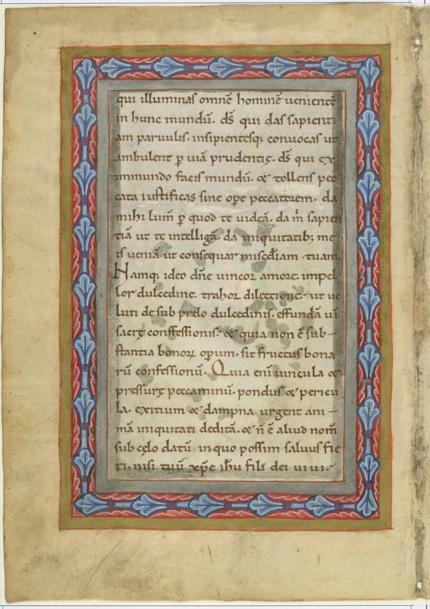 qui illuminas omnē hominē uenientē
in hunc mundū. dṡ qui das sapienti
am paruulis. insipientesq; conuocas ut
ambulent ꝑ uiā prudentię. dṡ qui ex
inmundo facis mundū. & tollens pec
cata iustificas sine ope peccatorem. da
mihi lum̄ ꝑ quod te uideā. da m̄ sapien
tiā ut te intelligā. da iniquitatib; me
is ueniā ut consequar miscđiam tuam.
Namq; ideo dn̄e uincor amore. impel
lor dulcedine. trahor dilectione. ut ue
luti de sub prelo dulcedinis. effundā ui
sacrę confessionis. & quia non ē sub
stantia bonorū opum. sit fructus bona
rū confessionū. Quia enī uincula &
pressurę peccaminū. pondus & pericu
la. exitium & dampna urgent ani
mā iniquitati deditā. & n̄ ē aliud nom̄
sub celo datū in quo possim saluus fie
ri. nisi tuū xp̄e ihū fili dei uiui.